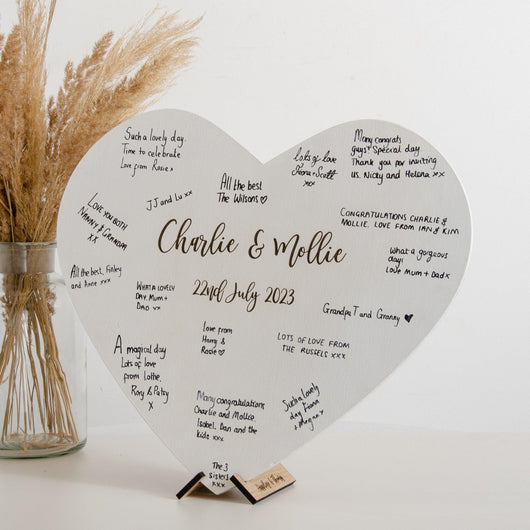 Such a lovely day.
Time to celebrate
Love from Rosie x
Many congrats
guys! Special day.
Thank you for inviting
us. Nicky and Helena xx
Lots of love
Fiona + Scott
xxx
All the best
The Wilsons ♡
JJ and Lu xx
LOVE YOU BOTH
NANNY & GRANDPA
XX
CONGRATULATIONS CHARLIE &
MOLLIE. LOVE FROM IAN & KIM
What a gorgeous
day!
Love Mum + Dad x
Charlie & Mollie
22nd July 2023
All the best, Finley
and Anne xxx
WHAT A LOVELY
DAY. MUM +
DAD xx
Grandpa T and Granny ♥
Love from
Harry &
Rosie ♡
LOTS OF LOVE FROM
THE RUSSELS xxx
A magical day
Lots of love
from Lottie,
Rory & Patsy
x
Many congratulations
Charlie and Mollie.
Isabel, Dan and the
kids xxx
Such a lovely
day Fiona
+ Megan x
The 3
sisters
xxx